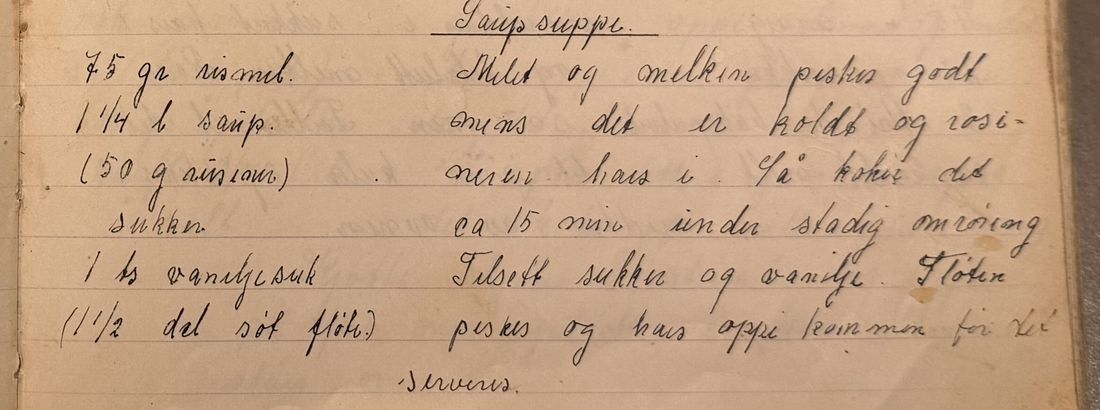 Saupsuppe.
75 gr rismel. Melet og melken piskes godt
1 1/4 l saup. mens det er koldt og rosi-
(50 g rusiner) neren haes i. Så kokes det
sukker ca 15 min under stadig omrøring
1 ts vaniljesuk Tilsett sukker og vanilje. Fløten
(1 1/2 del søt fløte.) piskes og haes oppi kommen før det
serveres.